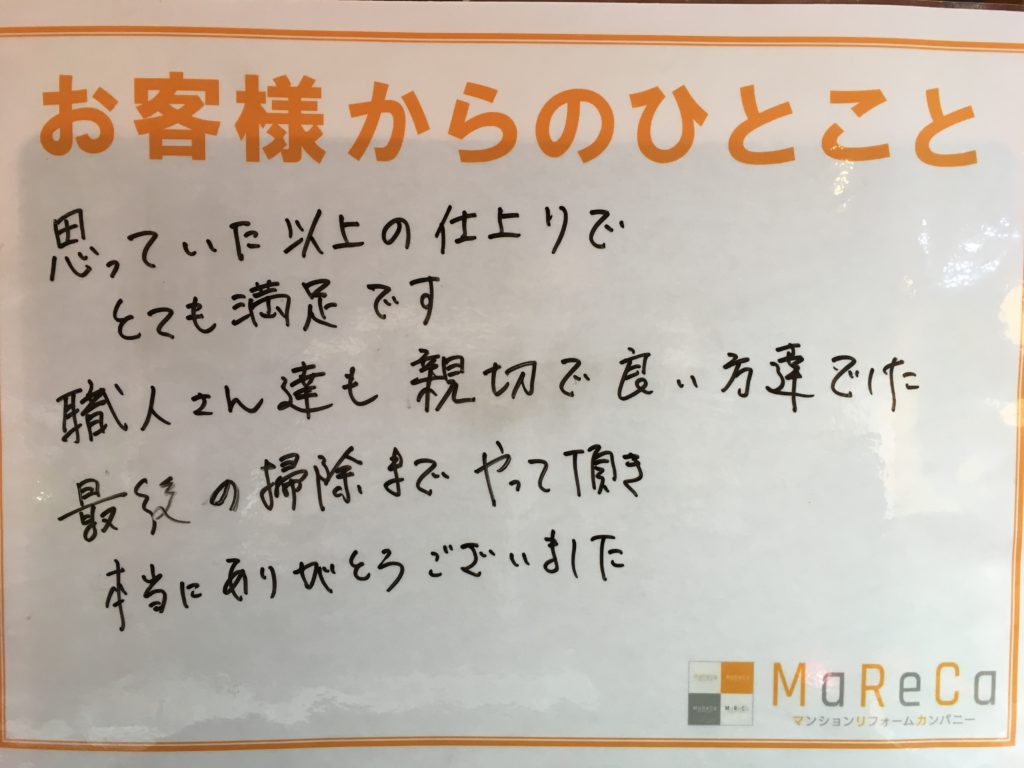 お客様からのひとこと
思っていた以上の仕上りで
とても満足です
職人さん達も親切で良い方達でした
最後の掃除までやって頂き
本当にありがとうございました
MaReCa
マンションリフォームカンパニー